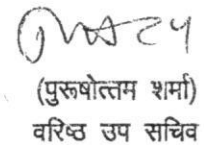 (पुरूषोत्तम शर्मा)
वरिष्ठ उप सचिव